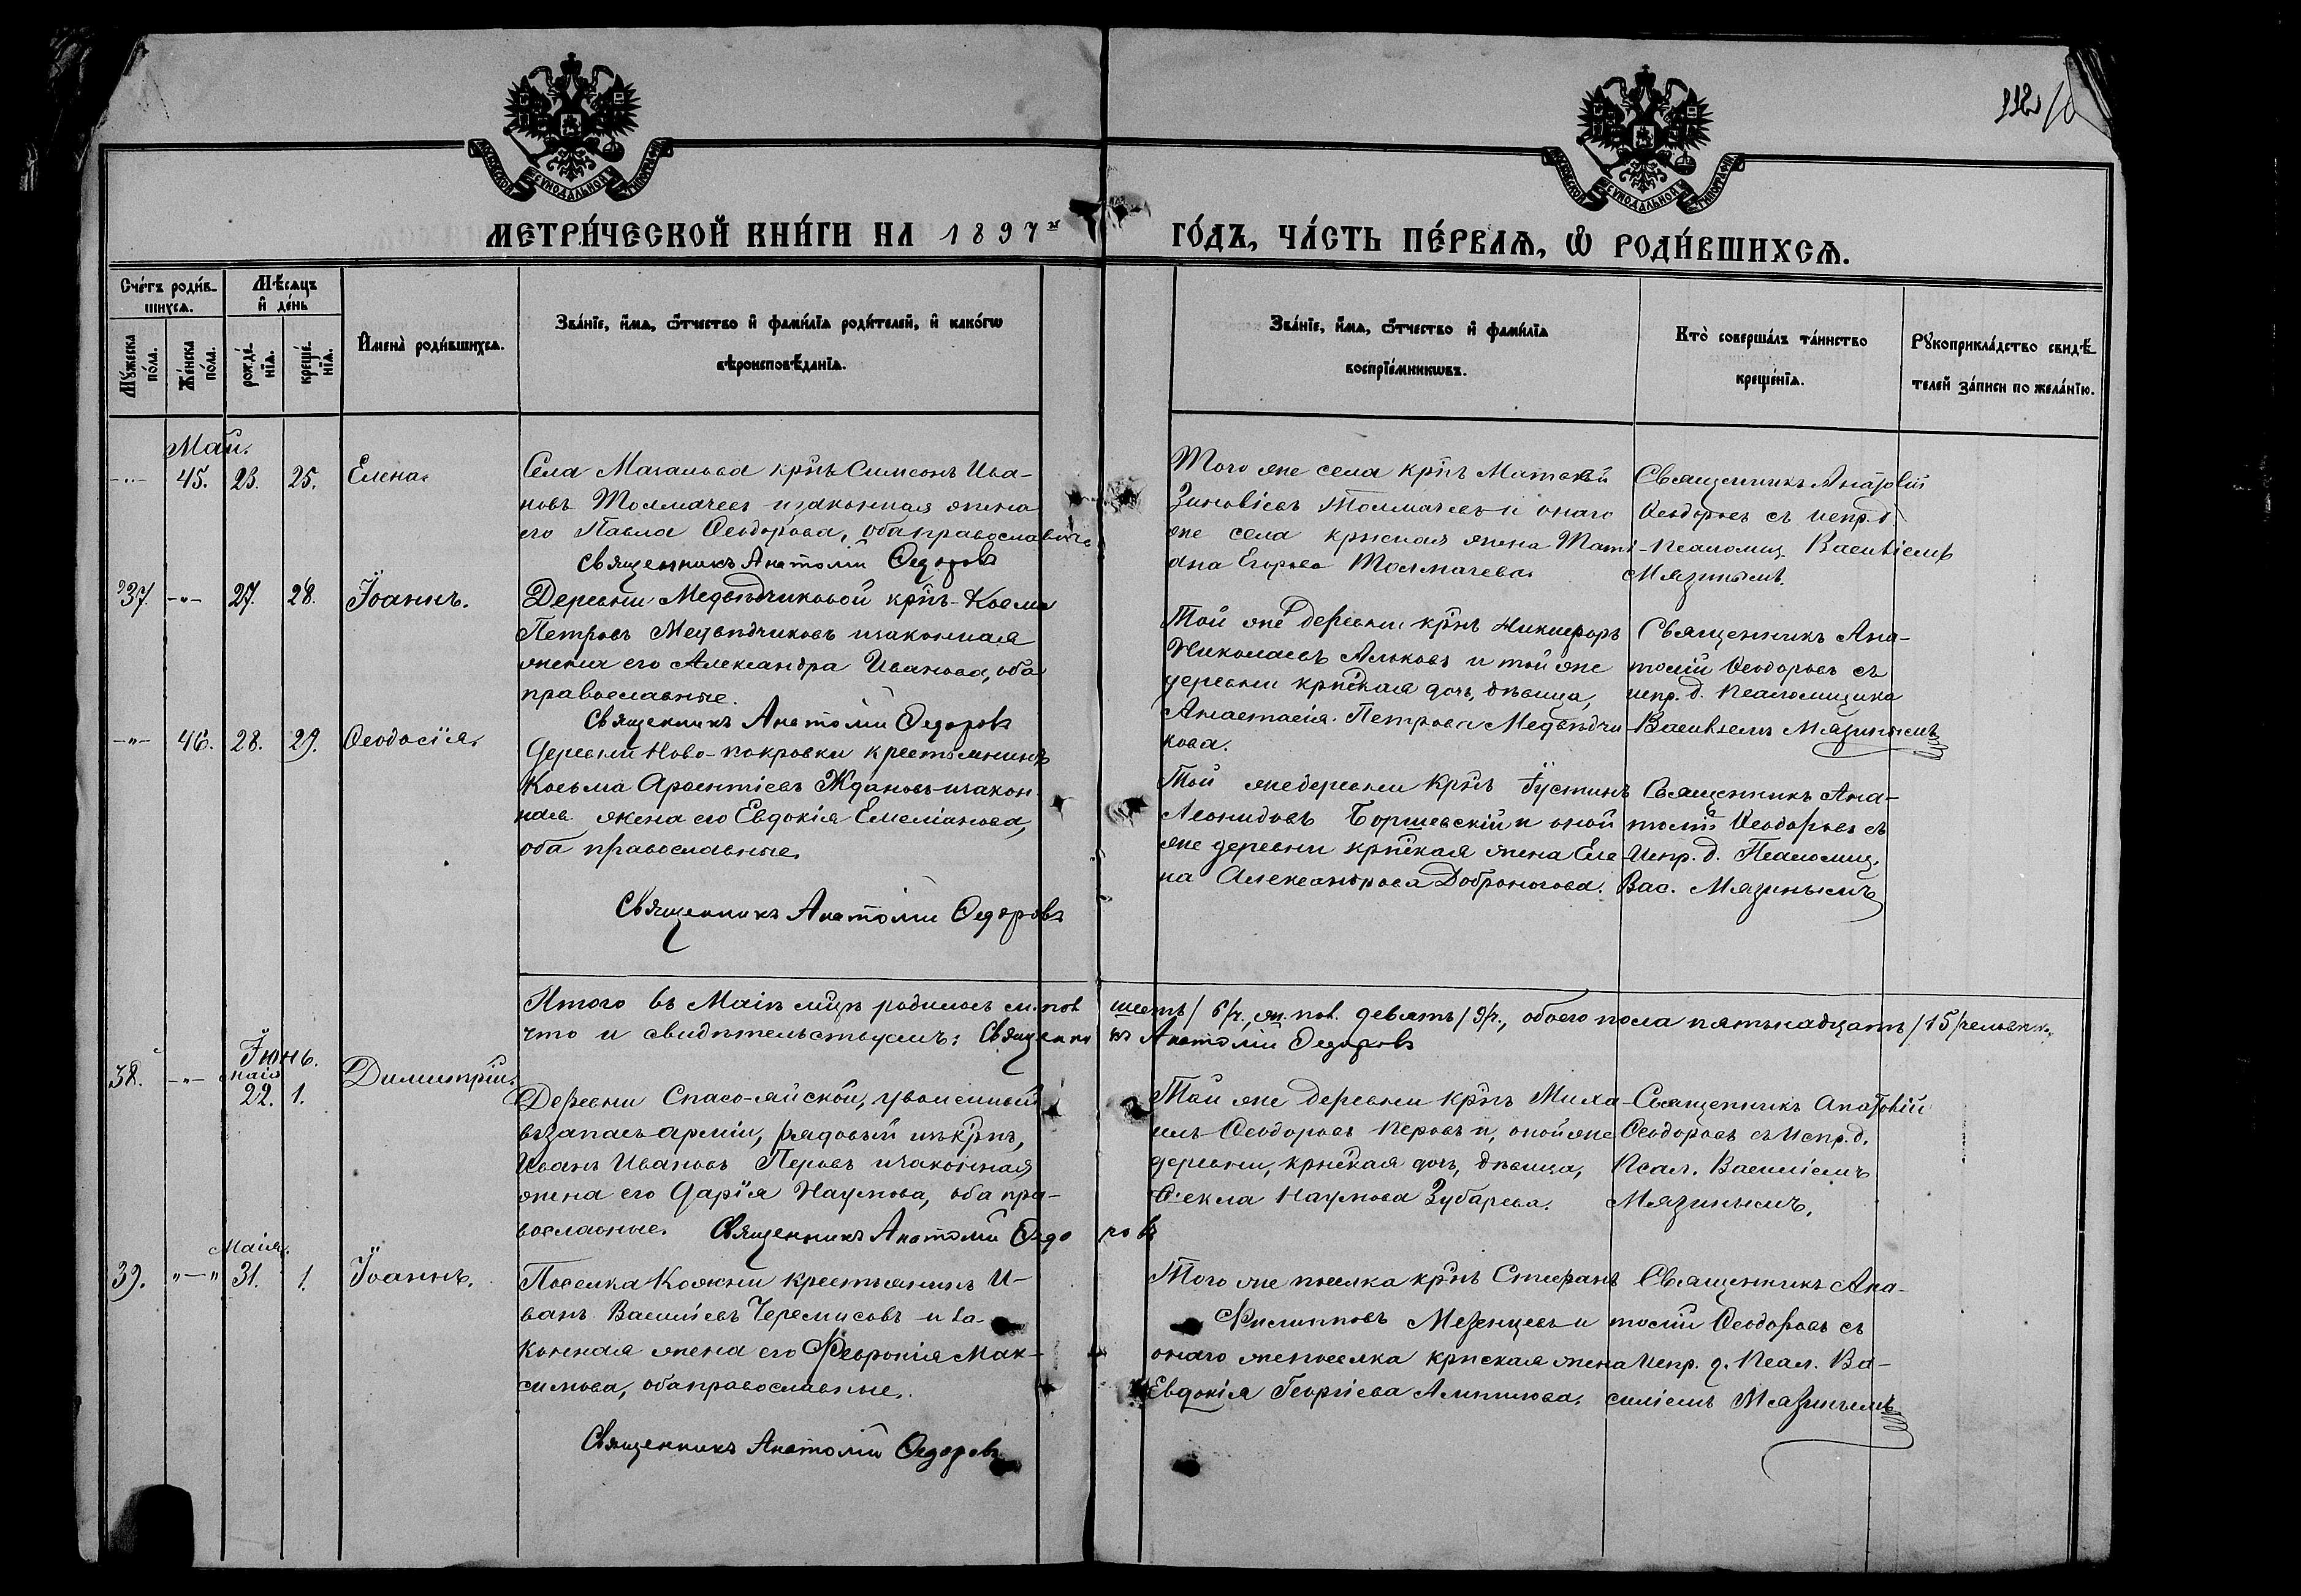 112
МОСКОВСКОЙ СУНОДАЛЬНОЙ ТИПОГРАФІИ
МОСКОВСКОЙ СУНОДАЛЬНОЙ ТИПОГРАФІИ
МЕТРИ́ЧЕСКОЙ КНИ́ГИ НА 1897й ГО́ДЪ, ЧА́СТЬ ПЕ́РВАѦ, Ѡ҆ РОДИ́ВШИХСѦ.
Сче́тъ роди́в-
шихсѧ.
Мѣ́сѧцъ
и҆ де́нь
Мꙋ́жеска по́ла.
Же́нска по́ла.
рожде́-
нїѧ.
креще́-
нїѧ.
И҆мена̀ роди́вшихсѧ.
Зва́нїе, и҆́мѧ, ѻ҆́тчество и҆ фами́лїѧ роди́телей, и҆ како́гѡ
вѣроисповѣ́данїѧ.
Зва́нїе, и҆́мѧ, ѻ҆́тчество и҆ фами́лїѧ
воспрїе́мникѡвъ.
Кто̀ соверша́лъ та́инство
креще́нїѧ.
Рꙋкоприкла́дство свидѣ́-
телей за́писи по жела́нїю.
Май.
-"- 45. 23. 25. Елена.
Села Магалова крнъ Симеонъ Ива-
новъ Толмачевъ и законная жена
его Павла Ѳеодорова, оба православные
Священникъ Анатолій Ѳедоровъ
Того же села крнъ Матвѣй
Зиновіевъ Толмачевъ и онаго
же села крнская жена Тати-
ана Егорова Толмачева.
Священникъ Анатолій
Ѳеодоровъ съ испр. д.
псаломщ. Василіемъ
Мязинымъ.
37. -"- 27. 28. Іоаннъ.
Деревни Медвѣдчиковой крнъ Косма
Петровъ Медвѣдчиковъ и законная
жена его Александра Иванова, оба
православные.
Священникъ Анатолій Ѳедоровъ
Той же деревни крнъ Никифоръ
Николаевъ Альковъ и той же
деревни крнская дочь, дѣвица,
Анастасія Петрова Медвѣдчи-
кова.
Священникъ Ана-
толій Ѳеодоровъ съ
испр. д. псаломщика
Василіемъ Мязинымъ
-"- 46. 28. 29. Ѳеодосія.
Деревни Ново-покровки крестьянинъ
Косьма Арсентіевъ Ждановъ и закон-
ная жена его Евдокія Емеліанова,
оба православные.
Священникъ Анатолій Ѳедоровъ
Той же деревни крнъ Іустинъ
Леонидовъ Боршевскій и оной
же деревни крнская жена Еле-
на Александрова Доброногова.
Священникъ Ана-
толій Ѳеодоровъ съ
Испр. д. Псаломщ.
Вас. Мязинымъ
Итого въ Маѣ мцѣ родилось м. пол шесть /6/ ч., ж. пол. девять /9/ ч., обоего пола пятьнадцать /15/ человѣкъ,
что и свидѣтельствуемъ: Священникъ Анатолій Ѳедоровъ
Іюнь.
38. -"- маія 22. 1. Димитрій.
Деревни Спасо-яйской, уволенный
въ запасъ арміи, рядовый изъ крнъ,
Иванъ Ивановъ Перовъ и законная
жена его Дарія Наумова, оба пра-
вославные. Священникъ Анатолій Ѳедоровъ
Той же деревни крнъ Миха-
илъ Ѳеодоровъ Перовъ и, оной же
деревни, крнская дочь, дѣвица,
Ѳекла Наумова Зубарева.
Священникъ Анатолій
Ѳеодоровъ съ Испр. д.
Псал. Василіемъ
Мязинымъ.
Маія.
39. "-" 31. 1. Іоаннъ.
Поселка Кожни крестьянинъ И-
ванъ Васильевъ Черемисовъ и за-
конная жена его Февронія Мак-
симова, оба православные.
Священникъ Анатолій Ѳедоровъ
Того же поселка крнъ Стефанъ
Филипповъ Мезенцевъ и
онаго же поселка крнская жена
Евдокія Георгіева Алыпова.
Священникъ Ана-
толій Ѳеодоровъ съ
Испр. д. Псал. Ва-
силіемъ Мязинымъ